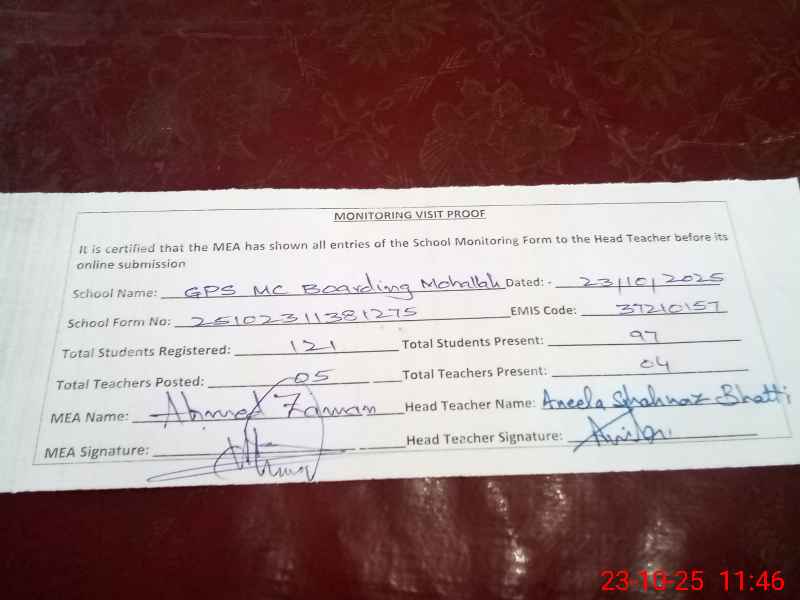 MONITORING VISIT PROOF
It is certified that the MEA has shown all entries of the School Monitoring Form to the Head Teacher before its
online submission
School Name: GPS MC Boarding Mohallah Dated: - 23/10/2025
School Form No: 25102311381275 EMIS Code: 37210157
Total Students Registered: 121 Total Students Present: 97
Total Teachers Posted: 05 Total Teachers Present: 04
MEA Name: Ahmed Zaman Head Teacher Name: Aneela Shahnaz Bhatti
MEA Signature: Head Teacher Signature:
23-10-25 11:46